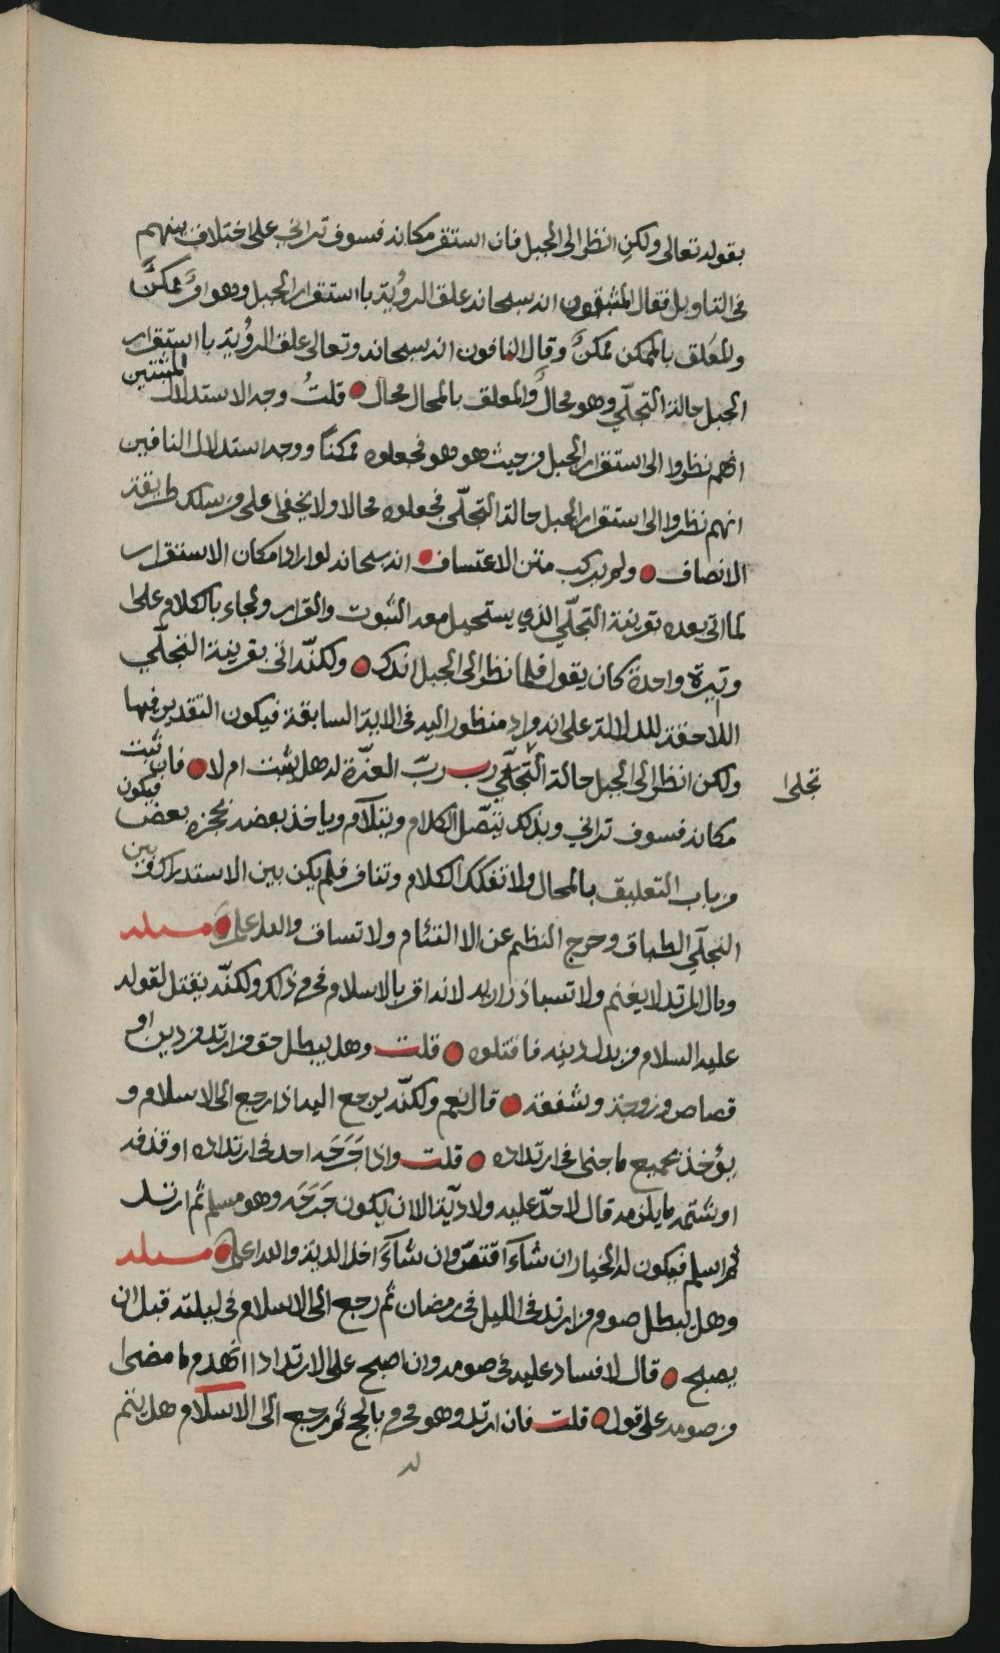 بقوله تعالى ولكن انظر الى الجبل فان استقر مكانه فسوف تراني على اختلاف بينهم
في التاويل فقال المثبتون انه سبحانه علق الرؤية باستقرار الجبل وهو امر ممكنٌ
والمعلق بالممكن ممكنٌ وقال النافون انه سبحانه وتعالى علق الرؤية باستقرار
الجبل حالة التجلّي وهو محالٌ والمعلق بالمحال محال قلتُ وجه الاستدلال المثبتين
انهم نظروا الى استقرار الجبل من حيث هو هو فجعلوه ممكناً ووجه استدلال النافين
انهم نظروا الى استقرار الجبل حالة التجلّي فجعلوه محالا ولا يخفى على من سلك طريقة
الانصاف ولم يركب متن الاعتساف انه سبحانه لو اراد امكان الاستقرار
لما اتى بعده بقرينة التجلّي الذي يستحيل معه الثبوت والقرار ولجاء بالكلام على
وتيرة واحدة كان يقول فلما نظر الى الجبل اندك ولكنّه اتى بقرينة التجلّي
اللاحقة للدلالة على انه مراد منظور اليه في الاية السابقة فيكون التقدير فيها
ولكن انظر الى الجبل حالة التجلّي رب ربّ العزّة له هل يثبت ام لا فان ثبت
تجلى
مكانه فسوف تراني وبذلك يتصّل الكلام ويتلآم وياخذ بعضه بحجزه بعض فيكون
من باب التعليق بالمحال ولا تفكك الكلام وتنافر فلم يكن بين الاستدراك وبين
التجلّي الطباق وخرج النظم عن الالتئام ولا تساق والله اعلم مسئلة
ومال المرتد لا يغنم ولا تسبا ذراريه لانه اقر بالاسلام فحرم ذلك ولكنّه يقتل لقوله
عليه السلام من بدل دينه فاقتلوه قلت وهل يبطل حق من ارتد من دين او
قصاص وزوجة وشفعة قال نعم ولكنّه يرجع اليه اذا رجع الى الاسلام و
يؤخذ بجميع ما جنى في ارتداده قلت واذا جَرَحَه احد في ارتداده او قذفه
او شتمه ما يلزمه قال لا حدّ عليه ولا ديّة الا ان يكون جَرَحَه وهو مسلم ثم ارتد
ثم اسلم فيكون له الخيار ان شآء اقتصّ وان شآء اخذ الدية والله اعلم مسئلة
وهل يبطل صوم من ارتد في الليل في رمضان ثم رجع الى الاسلام في ليلته قبل ان
يصبح قال لا فساد عليه في صومه وان اصبح على الارتداد انهدم ما مضى
من صومه على قول قلت فان ارتد وهو محرم بالحج ثم رجع الى الاسلام هل يتم
له